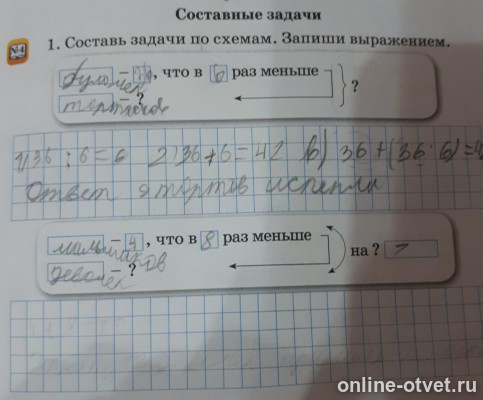 Составные задачи
№4
1. Составь задачи по схемам. Запиши выражением.
булочек – , что в 6 раз меньше
– ? ?
1) 36 : 6 = 6 2) 36 + 6 = 42 в) 36 + (36 : 6) = 4
ответ тортов испекли
мальчиков – 4, что в 8 раз меньше
девочек – ? на ?
online-otvet.ru